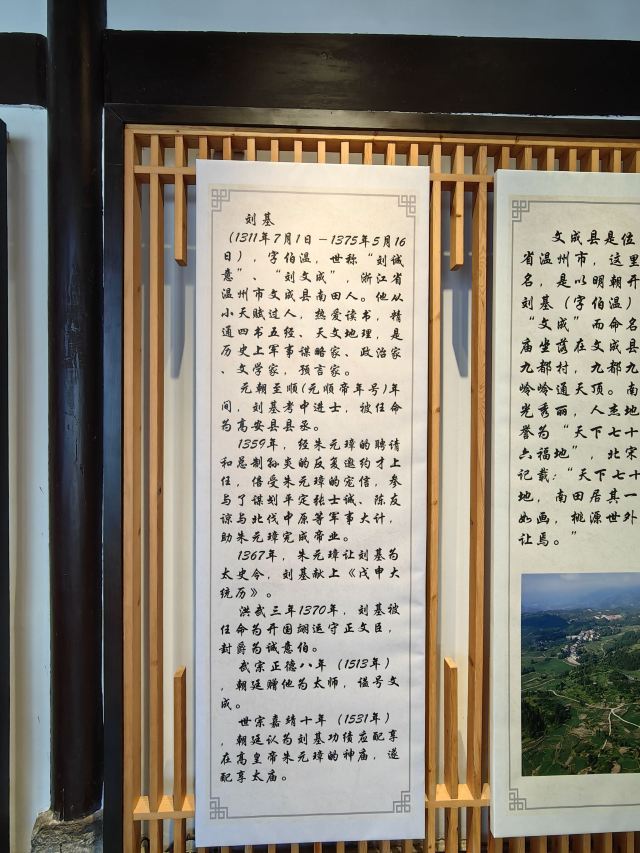 刘基
（1311年7月1日－1375年5月16
日），字伯温，世称“刘诚
意”、“刘文成”，浙江省
温州市文成县南田人。他从
小天赋过人，热爱读书，精
通四书五经、天文地理，是
历史上军事谋略家、政治家
、文学家，预言家。
元朝至顺(元顺帝年号)年
间，刘基考中进士，被任命
为高安县县丞。
1359年，经朱元璋的聘请
和总制孙炎的反复邀约才上
任，倍受朱元璋的宠信，参
与了谋划平定张士诚、陈友
谅与北伐中原等军事大计，
助朱元璋完成帝业。
1367年，朱元璋让刘基为
太史令，刘基献上《戊申大
统历》。
洪武三年1370年，刘基被
任命为开国翊运守正文臣，
封爵为诚意伯。
武宗正德八年（1513年）
，朝廷赠他为太师，谥号文
成。
世宗嘉靖十年（1531年）
，朝廷认为刘基功绩应配享
在高皇帝朱元璋的神庙，遂
配享太庙。
文成县是位
省温州市，这里
名，是以明朝开
刘基（字伯温）
“文成”而命名
庙坐落在文成县
九都村，九都九
岭岭通天顶。南
光秀丽，人杰地
誉为“天下七十
六福地”，北宋
记载：“天下七十
地，南田居其一
如画，桃源世外
让焉。”